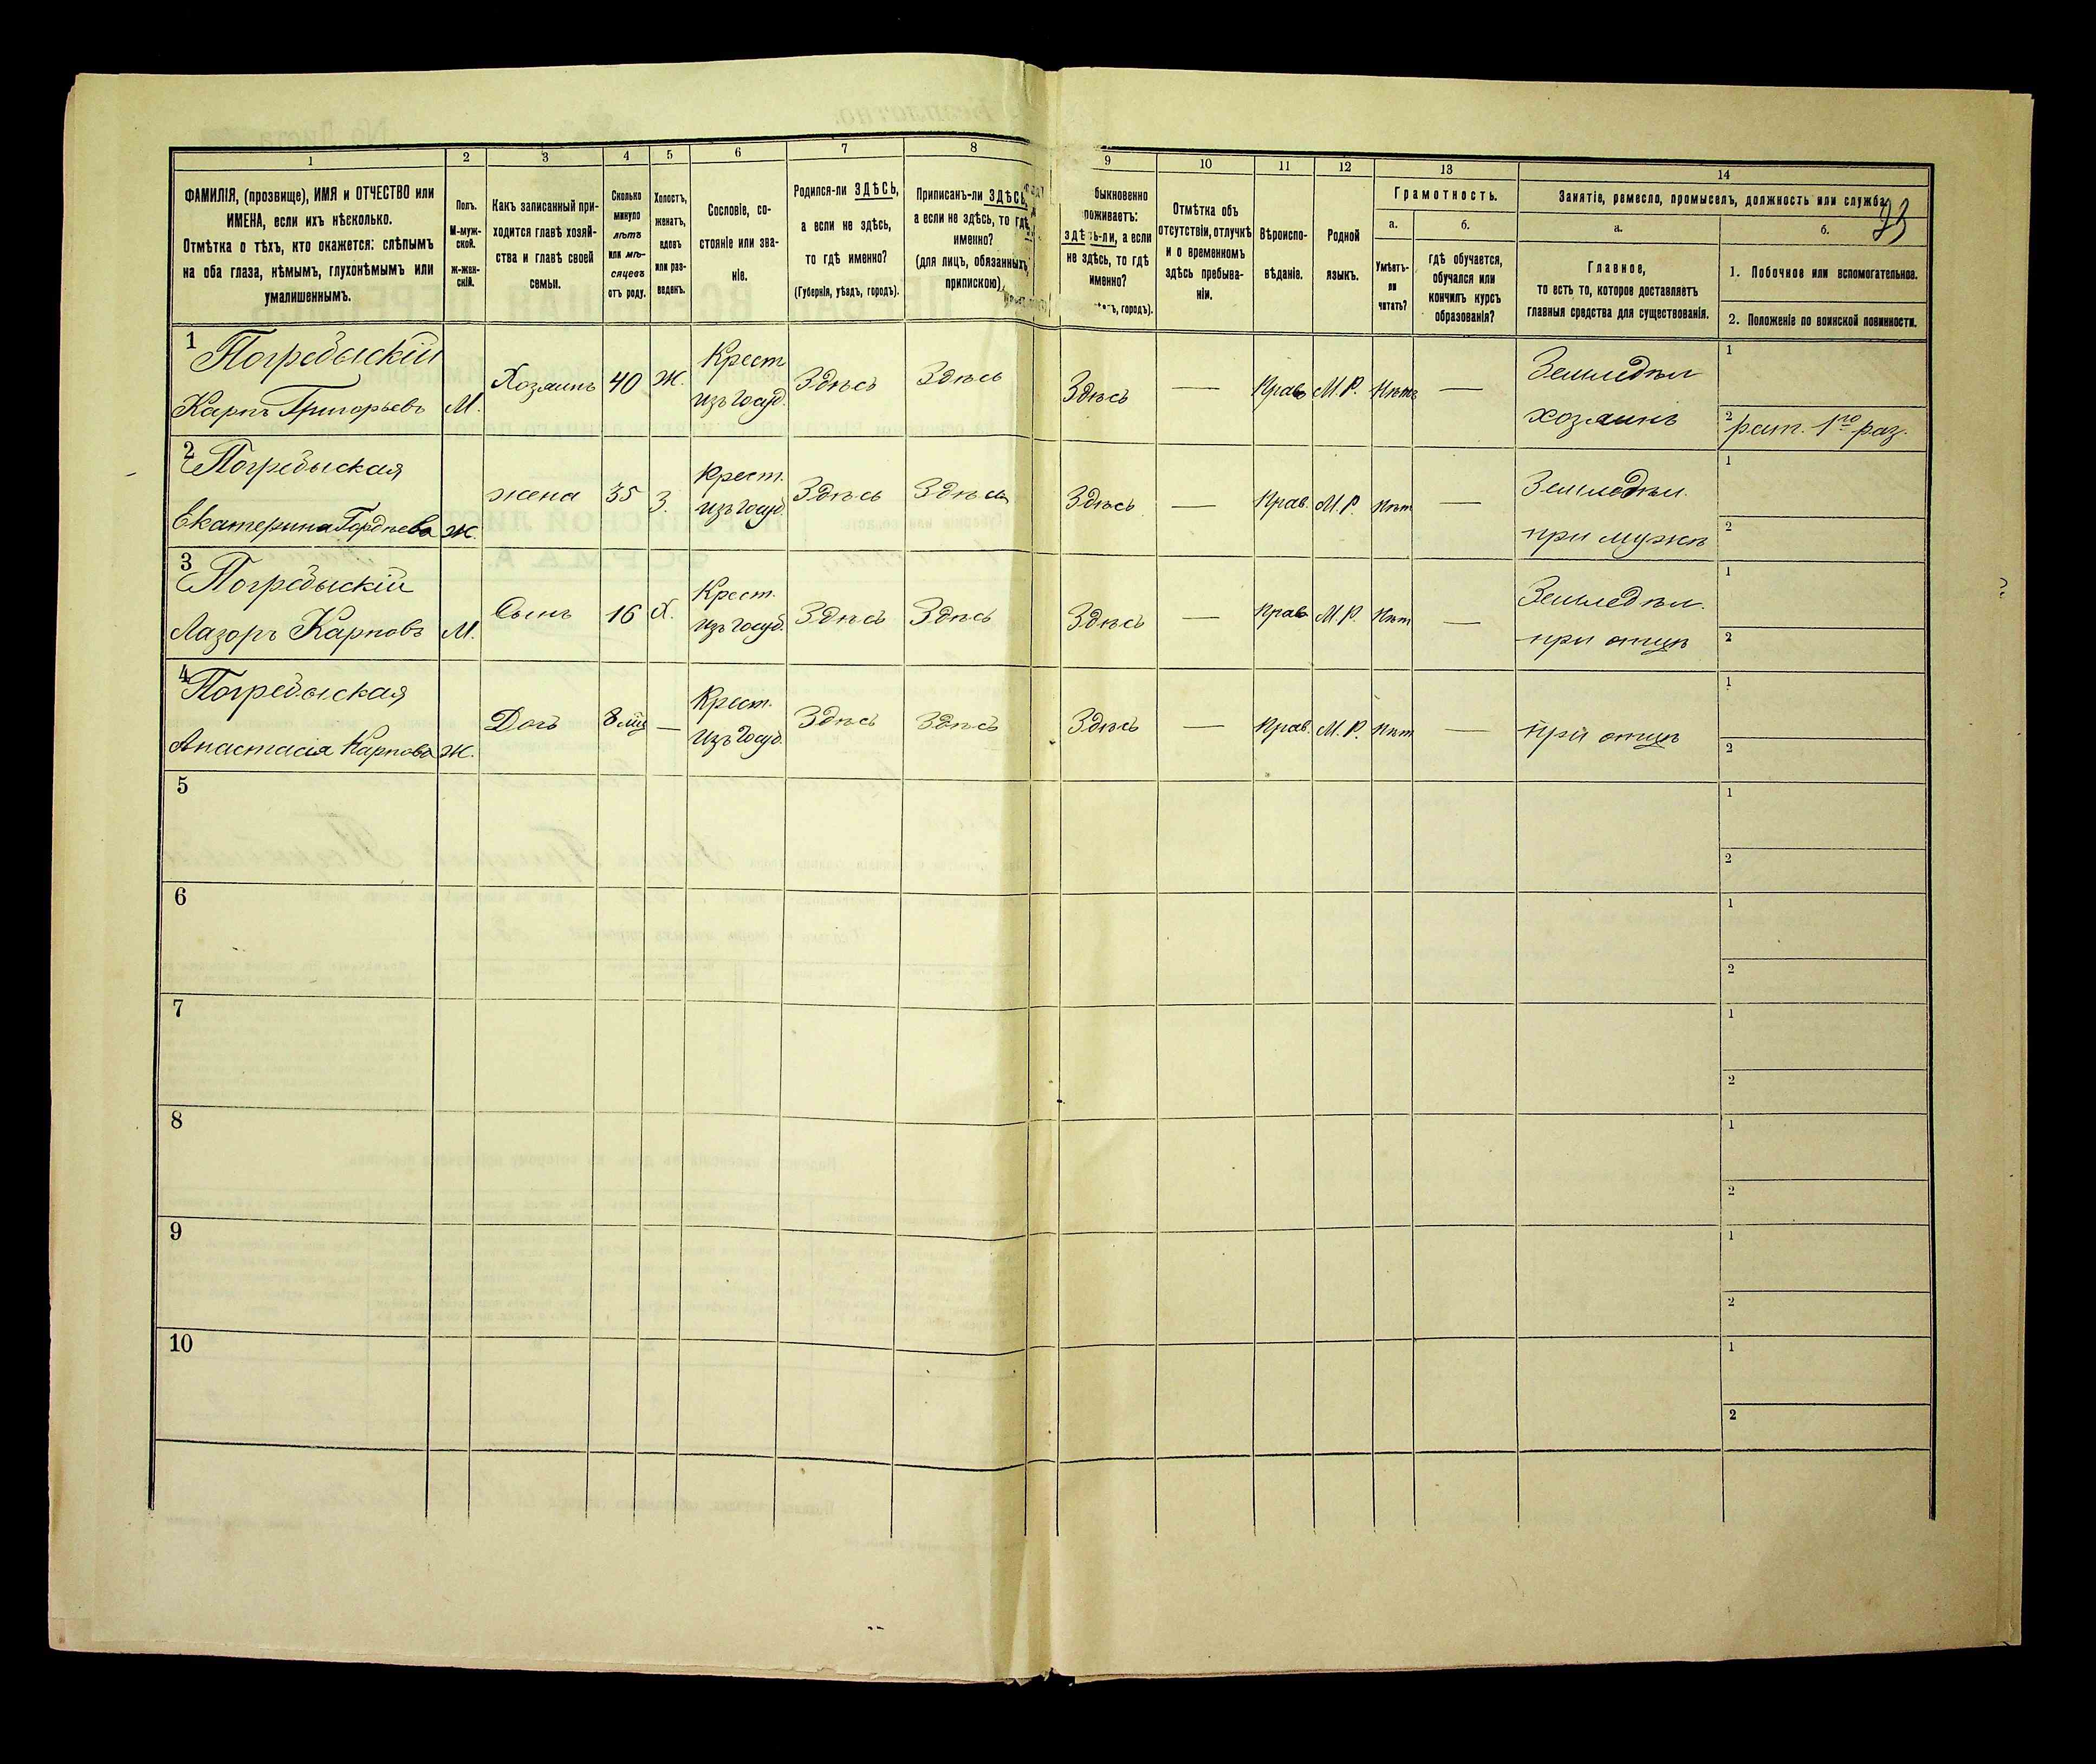 23
1 2 3 4 5 6 7 8 9 10 11 12 13 14
ФАМИЛІЯ, (прозвище), ИМЯ и ОТЧЕСТВО или
ИМЕНА, если ихъ нѣсколько.
Отмѣтка о тѣхъ, кто окажется: слѣпымъ
на оба глаза, нѣмымъ, глухонѣмымъ или
умалишеннымъ.
Полъ.
М-муж-
ской.
Ж-жен-
скій.
Какъ записанный при-
ходится главѣ хозяй-
ства и главѣ своей
семьи.
Сколько
минуло
лѣтъ
или мѣ-
сяцевъ
отъ роду.
Холостъ,
женатъ,
вдовъ
или раз-
веденъ.
Сословіе, со-
стояніе или зва-
ніе.
Родился-ли ЗДѢСЬ,
а если не здѣсь,
то гдѣ именно?
(Губернія, уѣздъ, городъ).
Приписанъ-ли ЗДѢСЬ,
а если не здѣсь, то гдѣ
именно?
(для лицъ, обязанныхъ
припискою)
быкновенно
поживаетъ:
здѣсь-ли, а если
не здѣсь, то гдѣ
именно?
ъ, городъ).
Отмѣтка объ
отсутствіи, отлучкѣ
и о временномъ
здѣсь пребыва-
ніи.
Вѣроиспо-
вѣданіе.
Родной
языкъ.
Грамотность.
а.
Умѣетъ-
ли
читать?
б.
гдѣ обучается,
обучался или
кончилъ курсъ
образованія?
Занятіе, ремесло, промыселъ, должность или служба
а.
Главное,
то есть то, которое доставляетъ
главныя средства для существованія.
б.
1. Побочное или вспомогательное.
2. Положеніе по воинской повинности.
1 Погребыскій
Карпъ Григорьевъ М.
Хозяинъ 40 Ж.
Крест
изъ госуд.
Здѣсь Здѣсь Здѣсь — Прав М.Р. Нѣтъ —
Земледѣл
хозяинъ
1
2 рат. 1го раз.
2 Погребыская
Екатерина Гордѣева Ж.
жена 35 З.
Крест.
изъ госуд.
Здѣсь Здѣсь Здѣсь — Прав. М.Р. Нѣт —
Земледѣл.
при мужѣ
1
2
3 Погребыскій
Лазорь Карповъ М.
Сынъ 16 Х.
Крест.
изъ госуд.
Здѣсь Здѣсь Здѣсь — Прав М.Р. Нѣт —
Земледѣл.
при отцѣ
1
2
4 Погребыская
Анастасія Карпова Ж.
Дочь 8 мц —
Крест.
изъ госуд.
Здѣсь Здѣсь Здѣсь — Прав. М.Р. Нѣт —
при отцѣ
1
2
5
1
2
6
1
2
7
1
2
8
1
2
9
1
2
10
1
2